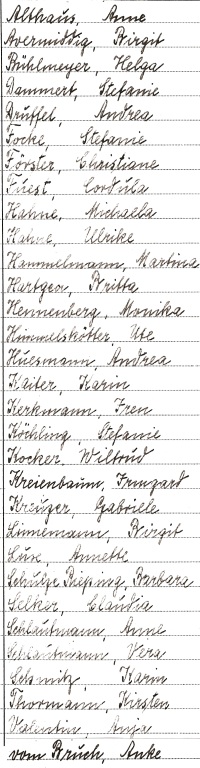 Althaus, Anne
Avermiddig, Birgit
Bühlmeyer, Helga
Dammert, Stefanie
Druffel, Andrea
Focke, Stefanie
Förster, Christiane
Fuest, Cordula
Hahne, Michaela
Hahne, Ulrike
Hammelmann, Martina
Hartgen, Britta
Hennenberg, Monika
Himmelskötter, Ute
Huesmann, Andrea
Kaiter, Karin
Kerkmann, Iren
Köchling, Stefanie
Kocker, Wiltrud
Kreienbaum, Irmgard
Kreuzer, Gabriele
Linnemann, Birgit
Luse, Annette
Schulze Bieping, Barbara
Selker, Claudia
Schlautmann, Anne
Schlautmann, Vera
Schmitz, Karin
Thormann, Kirsten
Valentin, Anja
vom Bruch, Anke